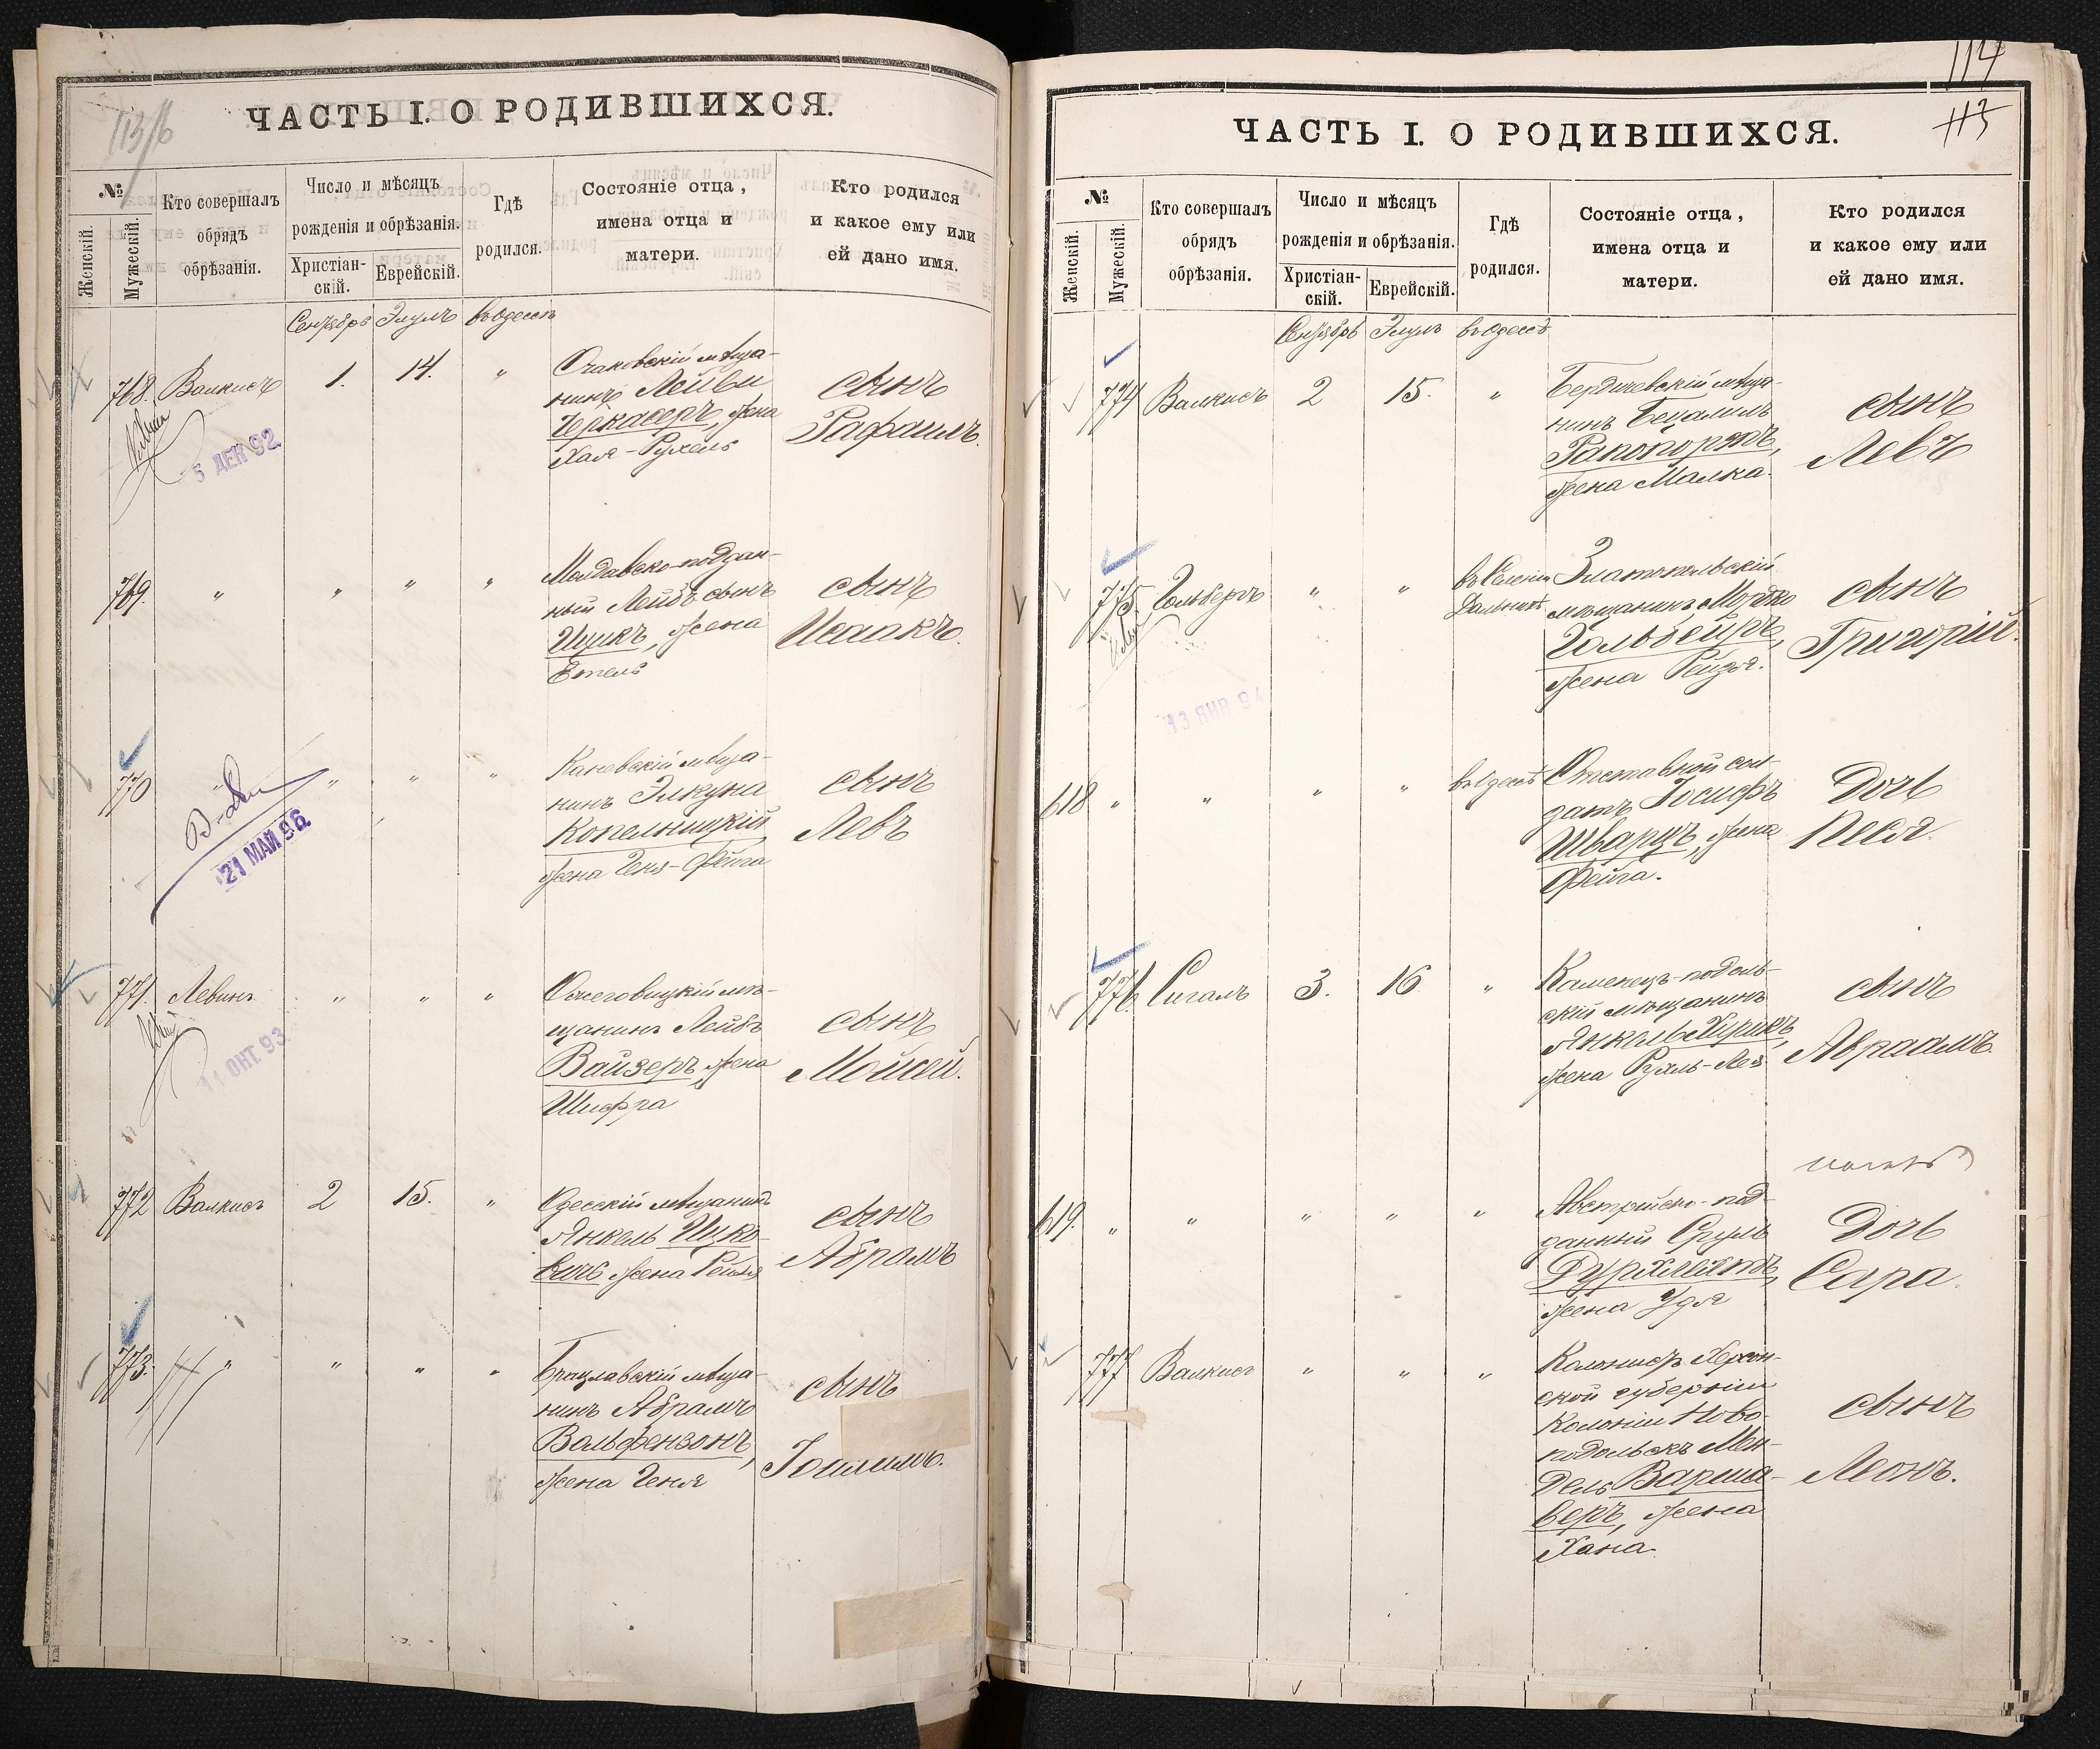 113/б
ЧАСТЬ I. О РОДИВШИХСЯ.
№
Женскій.
Мужескій.
Кто совершалъ
обрядъ
обрѣзанія.
Число и мѣсяцъ
рожденія и обрѣзанія.
Христіан-
скій.
Еврейскій.
Гдѣ
родился.
Состояніе отца,
имена отца и
матери.
Кто родился
и какое ему или
ей дано имя.
Сентябрь Элулъ въ Одессѣ
768. Валкисъ 1. 14. "
Очаковскій мѣща-
нинъ Лейви
Черкасеръ, жена
Хая-Рухель
сынъ
Рафаилъ.
5 ДЕК 92
769. " " " "
Молдавско-поддан-
ный Лейбъ сынъ
Ицикъ, жена
Етель
сынъ
Исаакъ.
770 " " " "
Каневскій мѣща-
нинъ Элкуна
Копельницкій
жена Геня-Фейга
сынъ
Левъ
21 МАЙ 96
771. Левинъ " " "
мѣ-
щанинъ Лейбъ
Вайзеръ, жена
Шифра
сынъ
Мойсей.
11 ОКТ. 93
772 Валкисъ 2 15. "
Одесскій мѣщанинъ
Янкель Ицко-
вичъ жена Рейзя
сынъ
Абрамъ
773. " " " "
Брацлавскій мѣща-
нинъ Абрамъ
Вольфензонъ,
жена Геня
сынъ
Іоилимъ.
114
113
ЧАСТЬ I. О РОДИВШИХСЯ.
№
Женскій.
Мужескій.
Кто совершалъ
обрядъ
обрѣзанія.
Число и мѣсяцъ
рожденія и обрѣзанія.
Христіан-
скій.
Еврейскій.
Гдѣ
родился.
Состояніе отца,
имена отца и
матери.
Кто родился
и какое ему или
ей дано имя.
Сентябрь Элулъ въ Одессѣ
774 Валкисъ 2 15. "
Бердичевскій мѣща-
нинъ Бецалилъ
Рапопортъ,
жена Малка.
сынъ
Левъ
775. Гольберъ " " въ Селеніи
Дальникѣ
Златопольскій
мѣщанинъ Мордко
Гольбейръ,
жена Рейзя.
сынъ
Григорій.
13 ЯНВ 94
618 " " " " въ Одессѣ
Отставной сол-
датъ Іосифъ
Шварцъ, жена
Фейга.
Дочь
Песя.
776. Сигалъ 3. 16 "
Каменецъ-подоль-
скій мѣщанинъ
Янкель
жена Рухль-Лея
сынъ
Авраамъ.
619. " " " " "
Австрійско-под-
данный Сруль
жена Удя
Дочь
Сара.
777 Валкисъ " " "
Колонистъ Херсон-
ской губерніи
Колоніи Ново-
подольскъ Мен-
дель Варша-
веръ, жена
Хана.
сынъ
Леонъ.